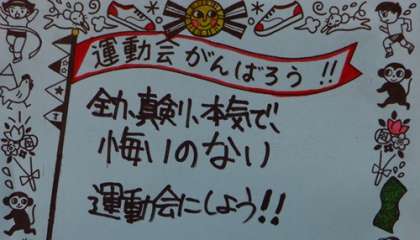 運動会がんばろう!!
全力、真剣、本気で、
悔いのない
運動会にしよう!!